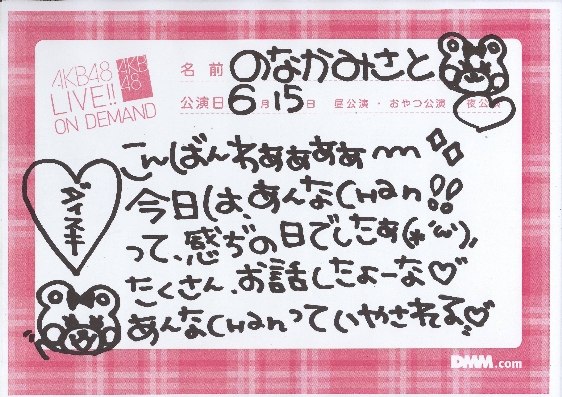 AKB48
LIVE!!
ON DEMAND
AKB
48
名前 のなかみさと
公演日 6月15日 昼公演・おやつ公演・夜公演
こんばんわぁぁぁぁ〜
今日は、あんなchan!!
って、感ぢの日でしたぁ(*'ω')
たくさん、お話したよーな♡
あんなchanっていやされる♡
DMM.com